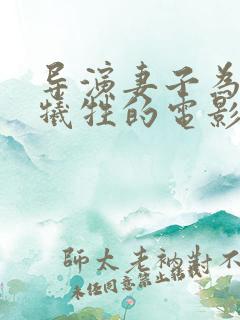 导演妻子為
犧牲的電影
師太老衲對不
未经同意禁止转载